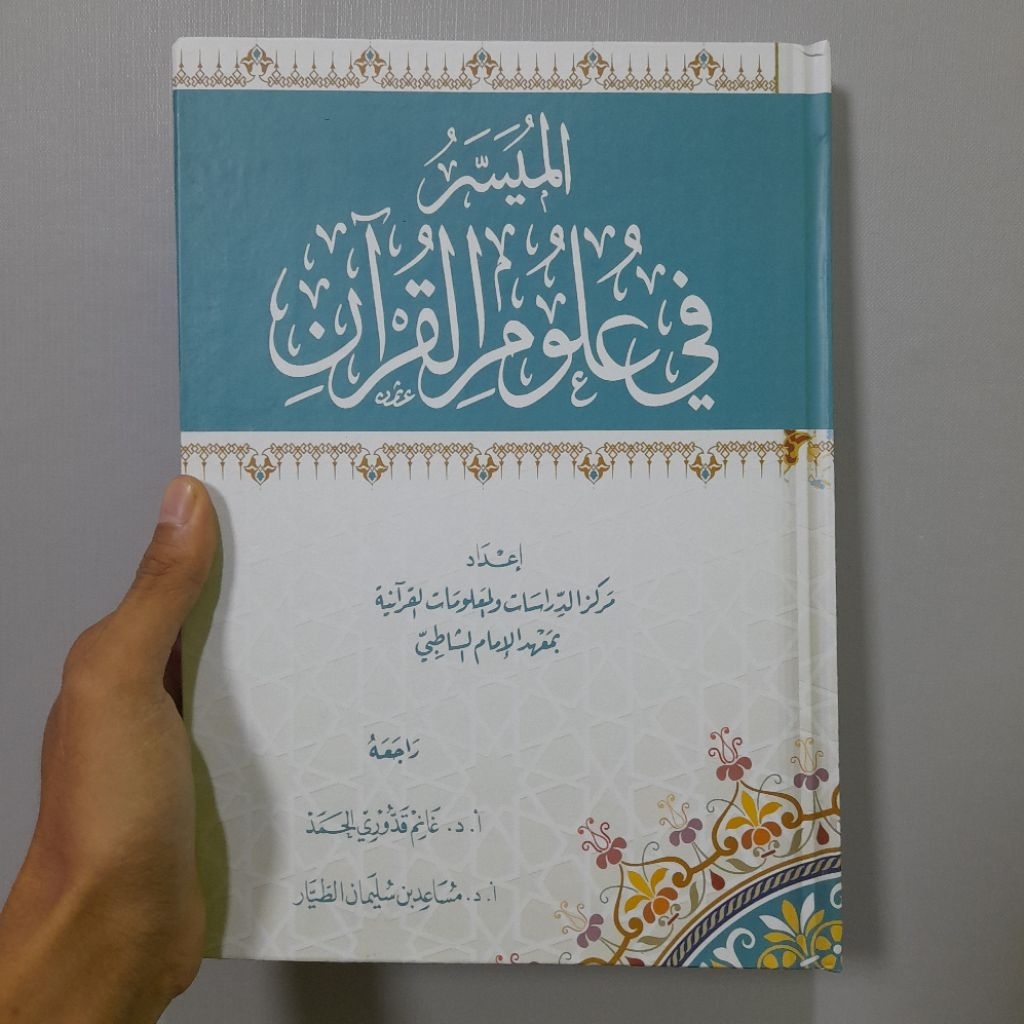 المُيَسَّرُ
في عُلُومِ القُرْآنِ
إعْدَاد
مَركز الدِّراسَات والمَعلومَات القرآنية
بمَعْهد الإمَام الشَّاطِبيّ
رَاجَعَهُ
أ. د. غَانِم قَدُّوْرِي الحَمَدْ
أ. د. مسَاعِد بن سُليمَان الطَّيَّار